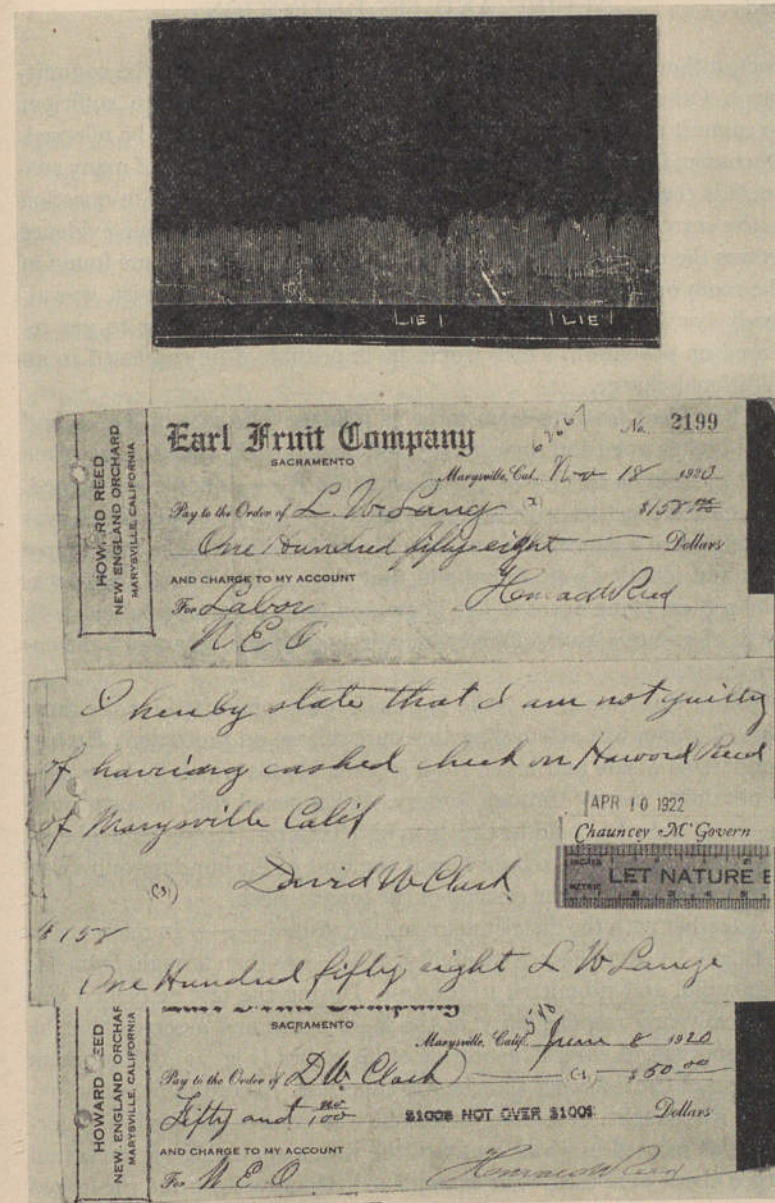 LIE
LIE
HOWARD REED
NEW ENGLAND ORCHARD
MARYSVILLE, CALIFORNIA
Earl Fruit Company
SACRAMENTO
No. 2199
Marysville, Cal. Nov 18 1920
Pay to the Order of L. W. Lang (2) $158 00
One Hundred fifty eight Dollars
AND CHARGE TO MY ACCOUNT
For Labor Howard Reed
N E O
I hereby state that I am not guilty
of having cashed check on Haword Reed
of Marysville Calif
APR 10 1922
Chauncey McGovern
David W Clark
(3)
LET NATURE
METRIC
$158
One Hundred fifty eight L W Lange
HOWARD REED
NEW ENGLAND ORCHAR
MARYSVILLE, CALIFORNIA
SACRAMENTO
Marysville, Calif. June 8 1920
Pay to the Order of D W. Clark $50 00
Fifty and no/100 $100$ NOT OVER $100$ Dollars
AND CHARGE TO MY ACCOUNT
For N E O Howard Reed